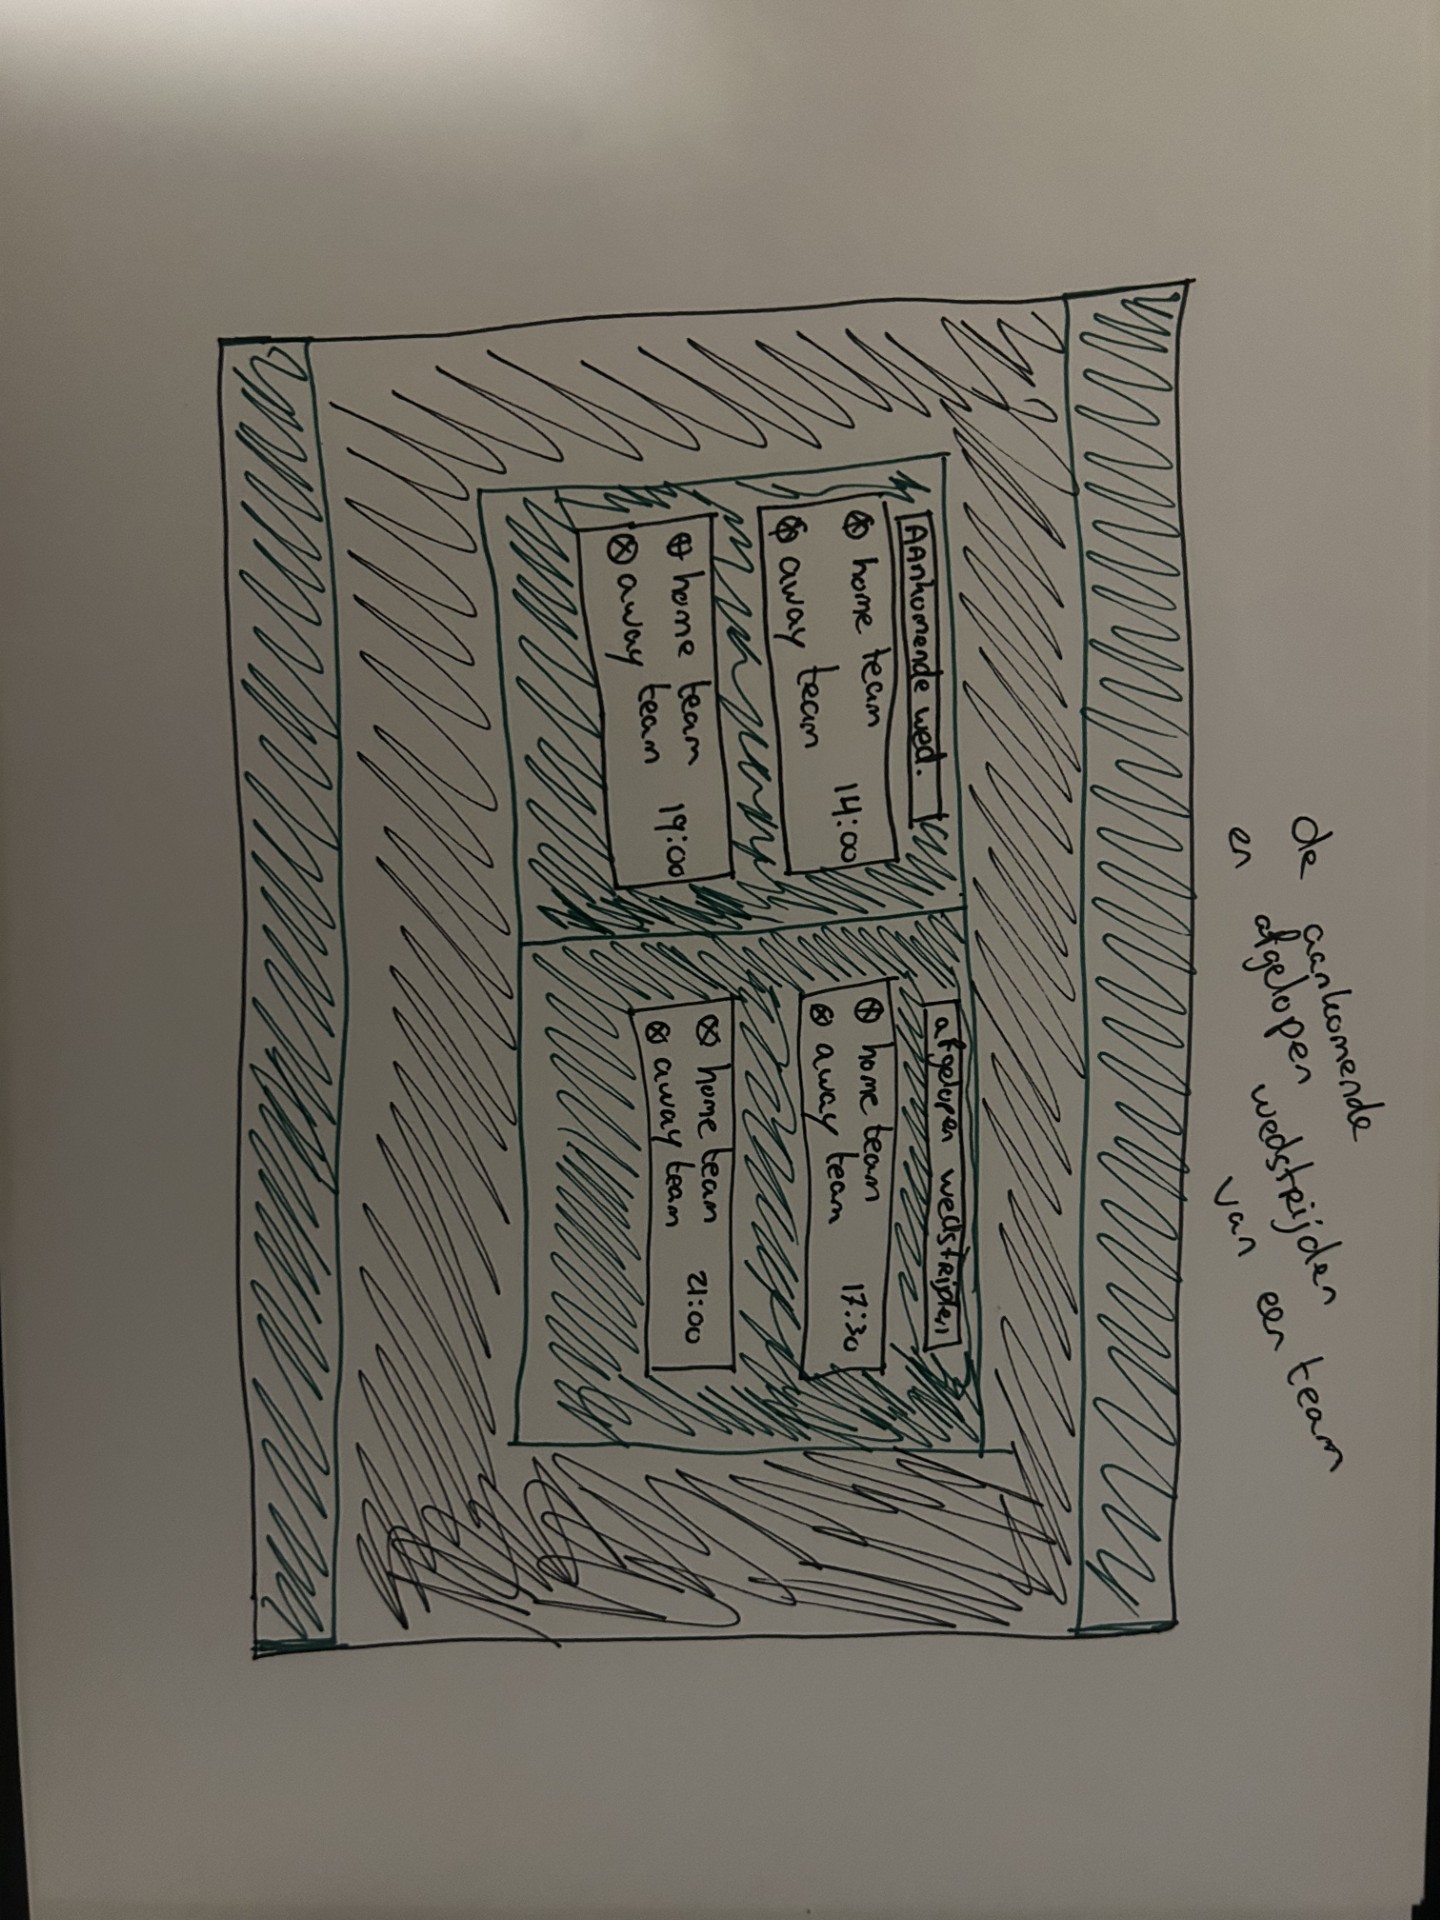 de aankomende
en afgelopen wedstrijden
van een team
Aankomende wed.
home team
away team 14:00
home team
away team 19:00
afgelopen wedstrijden
home team
away team 17:30
home team
away team 21:00